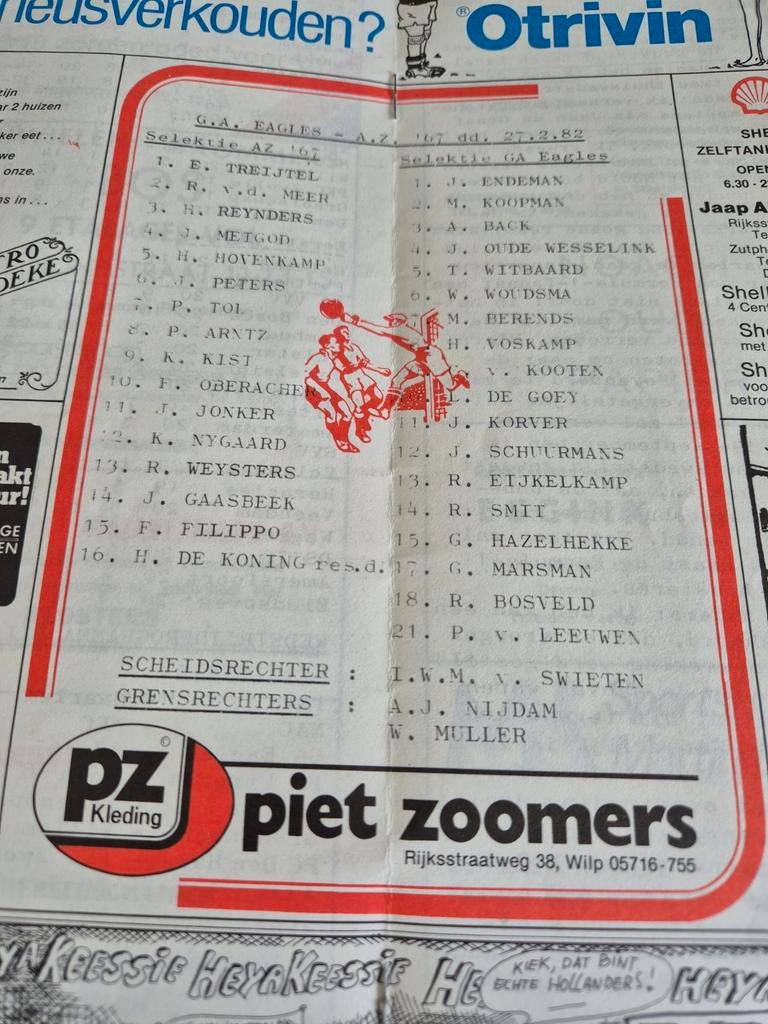 neusverkouden?
® Otrivin
G.A. EAGLES - A.Z. '67 dd. 27.2.82
Selektie AZ '67
1. E. TREIJTEL
2. R. v.d. MEER
3. H. REYNDERS
4. J. METGOD
5. H. HOVENKAMP
6. J. PETERS
7. P. TOL
8. P. ARNTZ
9. K. KIST
10. F. OBERACHER
11. J. JONKER
12. K. NYGAARD
13. R. WEYSTERS
14. J. GAASBEEK
15. F. FILIPPO
16. H. DE KONING res.d.
Selektie GA Eagles
1. J. ENDEMAN
2. M. KOOPMAN
3. A. BACK
4. J. OUDE WESSELINK
5. T. WITBAARD
6. W. WOUDSMA
7. M. BERENDS
8. H. VOSKAMP
v. KOOTEN
L. DE GOEY
11. J. KORVER
12. J. SCHUURMANS
13. R. EIJKELKAMP
14. R. SMIT
15. G. HAZELHEKKE
17. G. MARSMAN
18. R. BOSVELD
21. P. v. LEEUWEN
SCHEIDSRECHTER : I.W.M. v. SWIETEN
GRENSRECHTERS : A.J. NIJDAM
W. MULLER
pz ©
Kleding
piet zoomers
Rijksstraatweg 38, Wilp 05716-755
zijn
ar 2 huizen
ker eet...
we
onze.
ns in...
SHE
ZELFTAN
OPE
6.30 - 2
Jaap A
Rijkss
Te
Zutph
Te
Shel
4 Cen
Sh
met
Sh
voo
betro
akt
ur!
GE
EN
HEYAKEESSIE HEYAKEESSIE HE
KIEK, DAT BINT
ECHTE HOLLANDERS!
HEYA